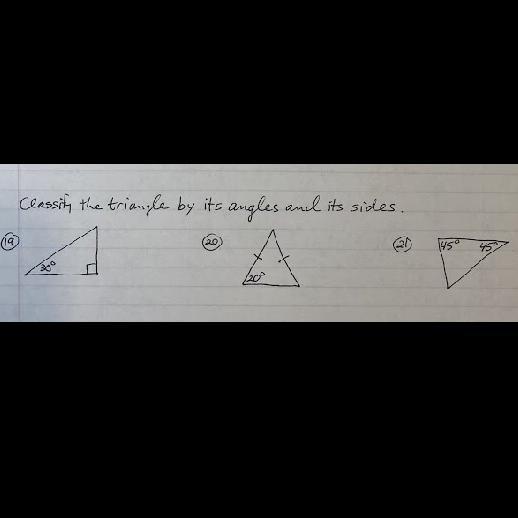 Classify the triangle by its angles and its sides.
19 20 21
30° 45° 45°